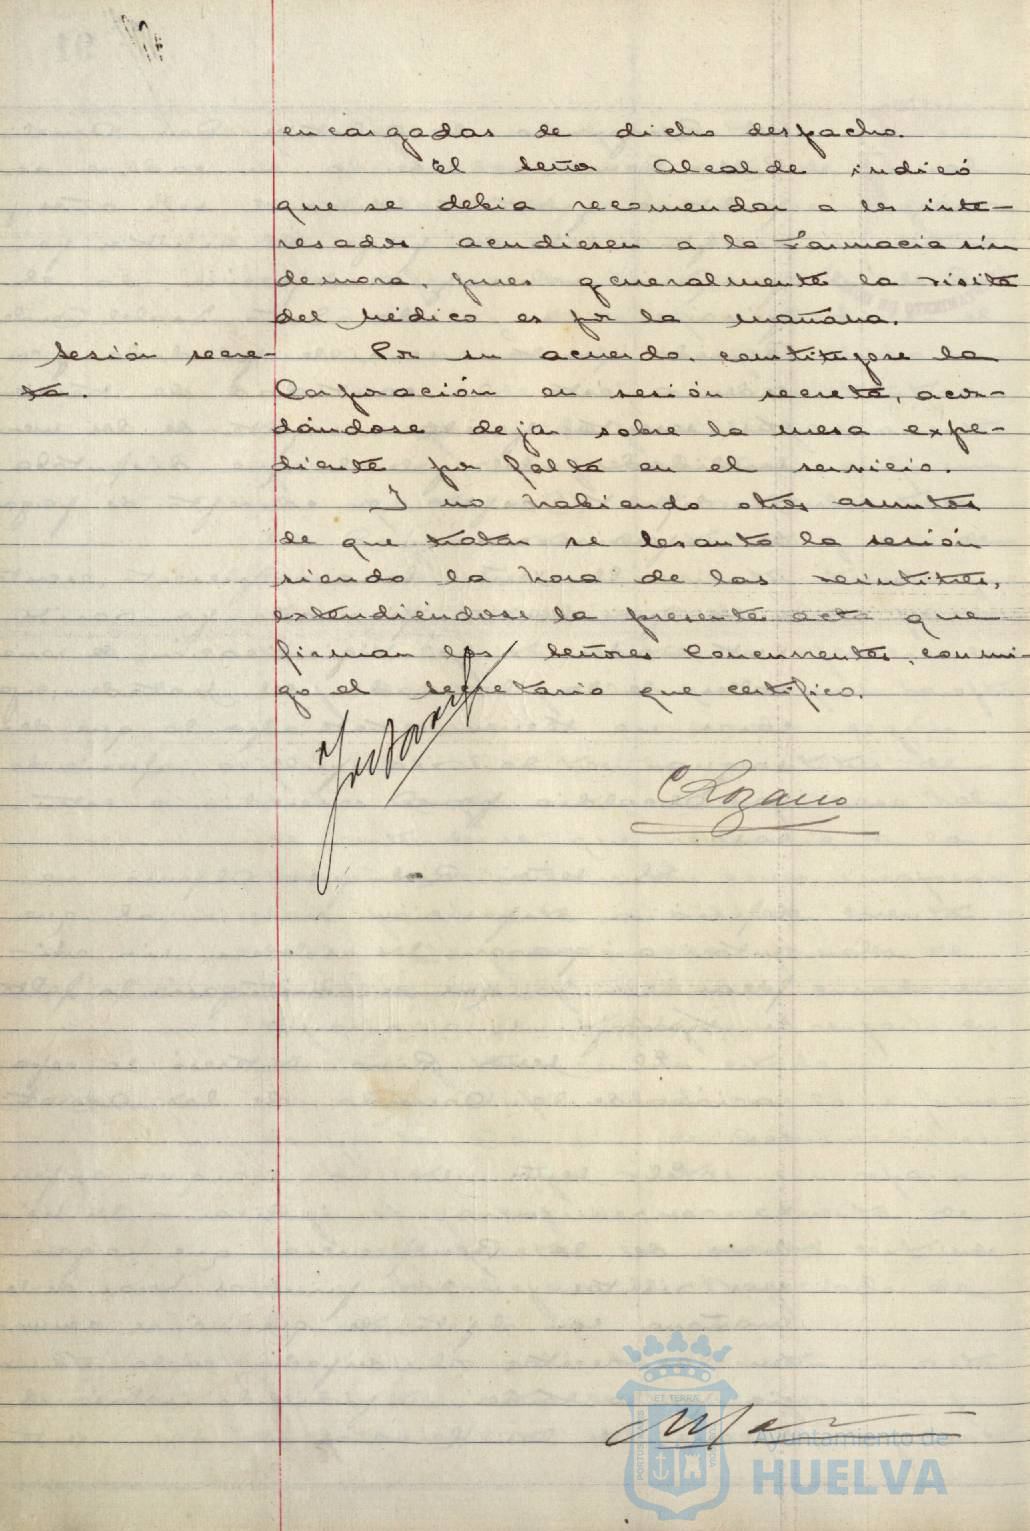 encargadas de dicho despacho.
El Señor Alcalde indicó
que se debia recomendar a los inte-
resados acudiesen a la Farmacia sin
demora, pues generalmente la visita
del Médico es por la mañana.
Sesión secre-
ta.
Por su acuerdo, constituyose la
Corporación en sesión secreta, acor-
dándose dejar sobre la mesa expe-
diente por falta en el servicio.
Y no habiendo otros asuntos
de que tratar se levantó la sesión
siendo la hora de las veintitres,
extendiéndose la presente acta que
firman los Señores Concurrentes, conmi-
go el secretario que certifico.
Lozano
ET TERRAE
Ayuntamiento de
HUELVA